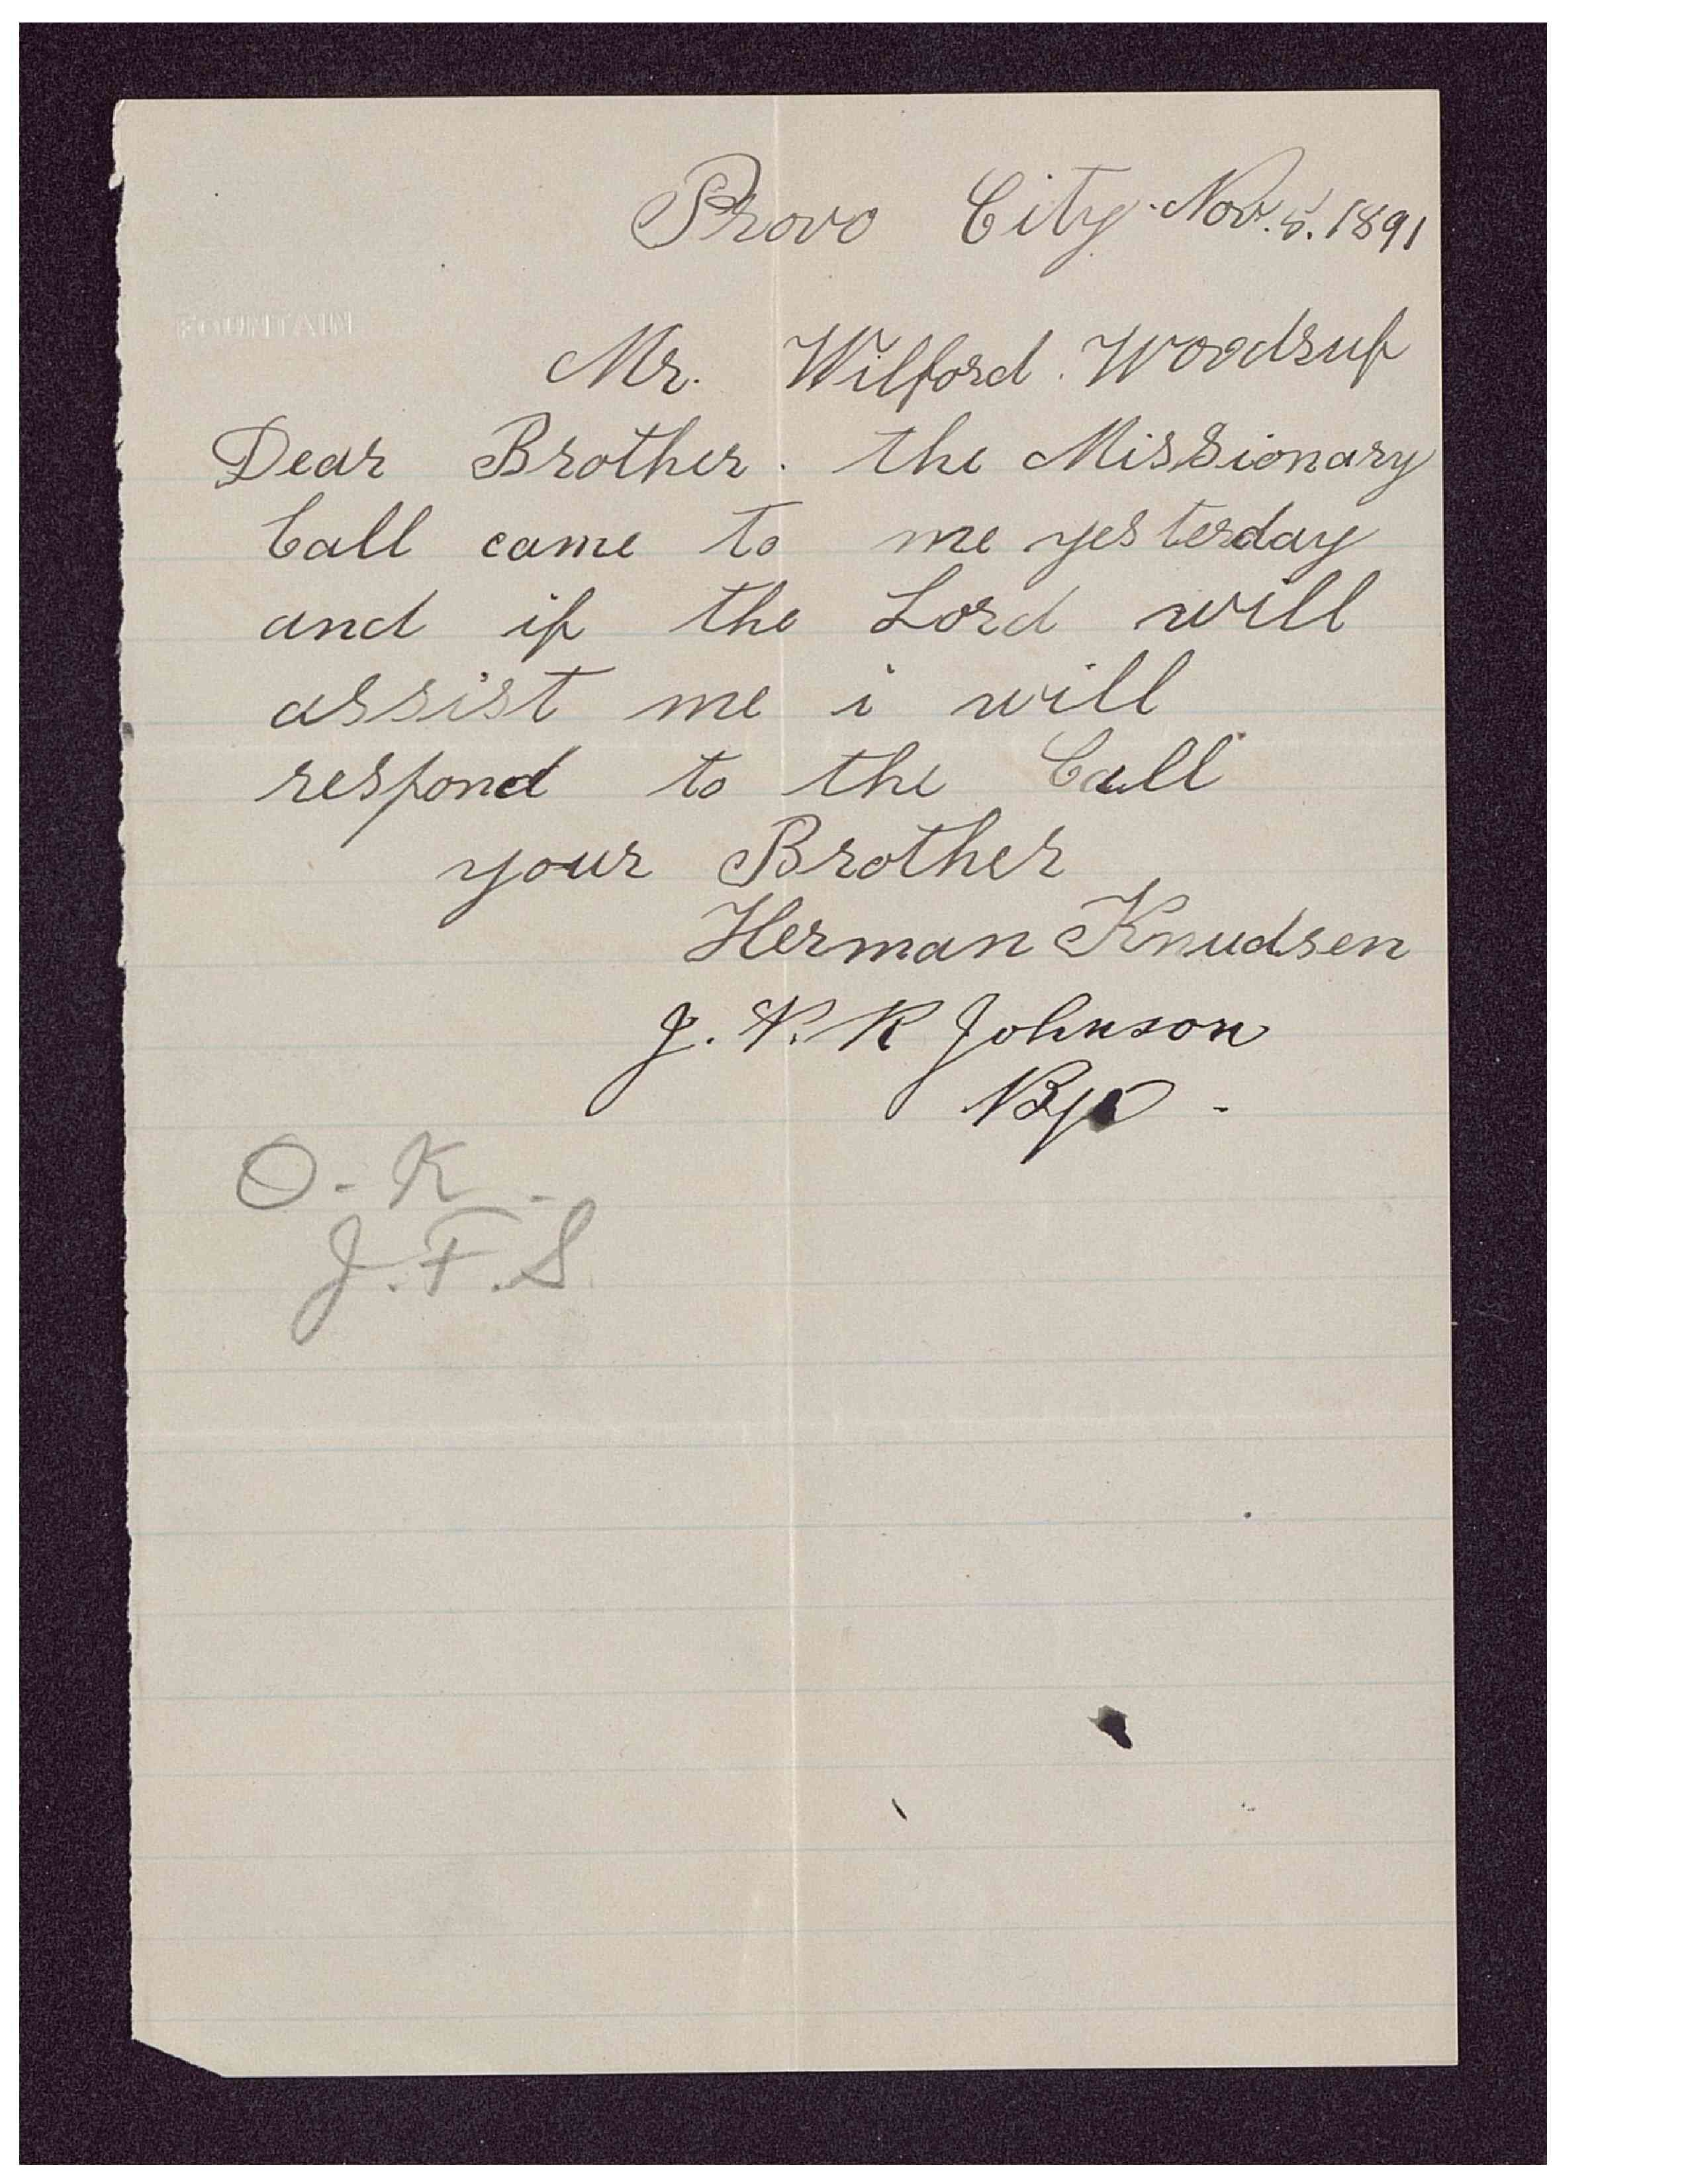 Provo City Nov. 5. 1891
FOUNTAIN
Mr. Wilford. Woodruf
Dear Brother. the Missionary
Call came to me yesterday
and if the Lord will
assist me i will
respond to the Call
your Brother
Herman Knudsen
J. P. R Johnson
Bp -
O. K.
J. F. S.